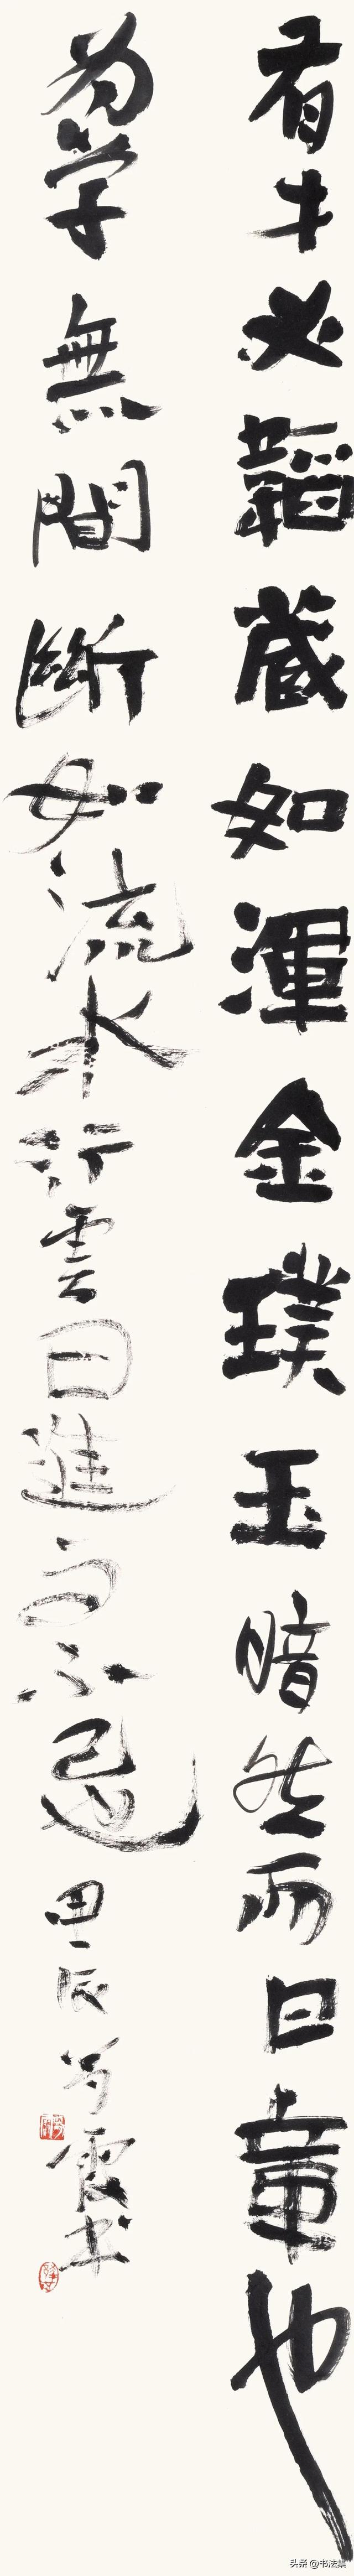 有才必韜藏如渾金璞玉暗然而日章也
為学無間斷如流水行雲日進而不已也
甲辰 霞书
头条 @书法集